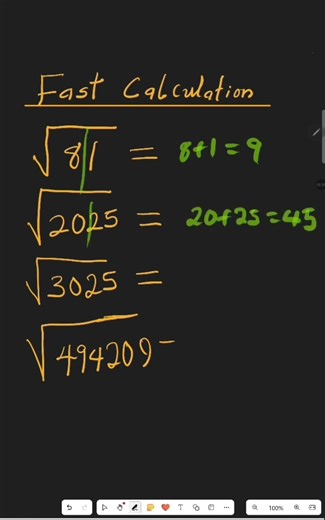 Fast Calculation
√81 = 8+1=9
√2025 = 20+25=45
√3025 =
√494209=
100%